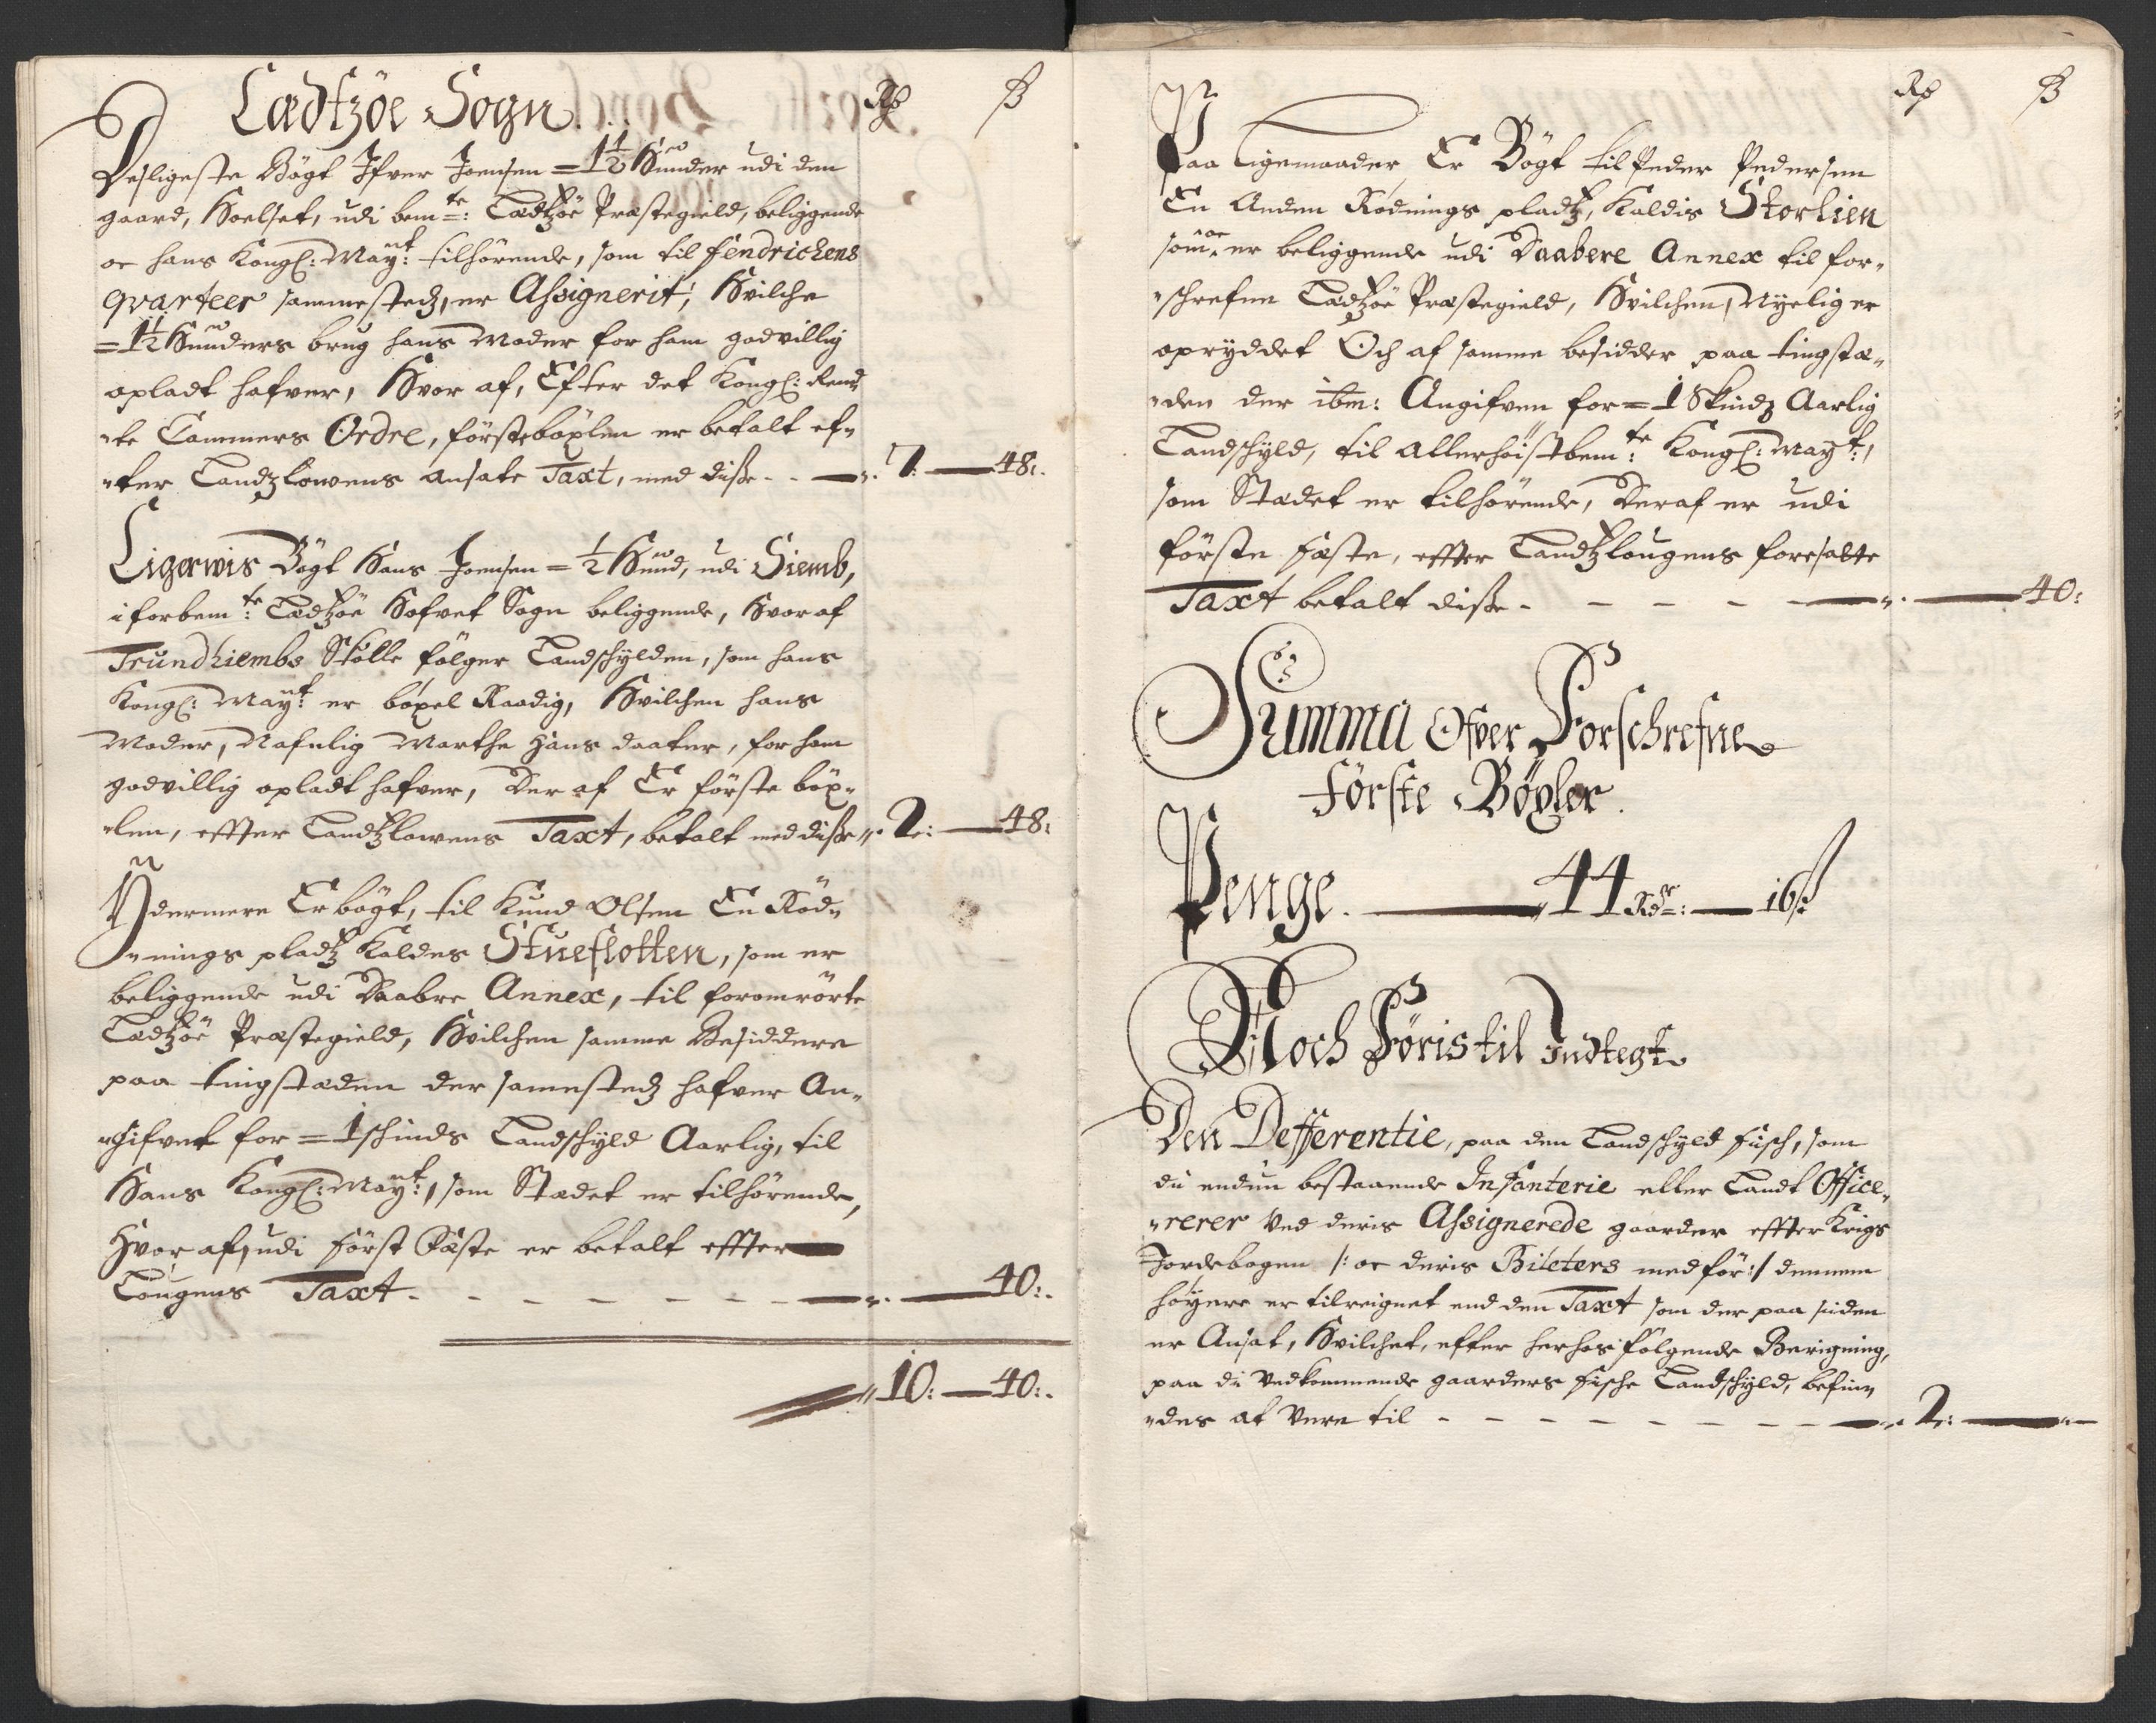 Lædtzöe Sogn. Rd ß
Desligeste Bögt Ifver Joensen = 1½ Hunder udi den
gaard, Hoelset, udi bemte: Lædtzöe Præstegield, beliggende
oc hans Kongl: Mayt: tilhörende, som til fendrichens
qvarteer sammestedz, er Assignerit, Hvilche
= 1½ Hunders brug hans Moder for ham godvillig
opladt hafver, Hvor af, Efter det Kongl: Rend
"te Cammers Ordre, förstebóxlen er betalt ef"
"ter Landzlowens ansate Taxt, med diße - - 7: 48:
Ligerwis Bögt Hans Joensen = ½ Hund, udi Siemb,
i forbemte: Lædtzöe Hofvet Sogn beliggende, Hvor af
Trundhiembs Stólle fölger Landschylden, som hans
Kongl: Mayt: er bóxel Raadig, Hvilchen hans
Moder, Nafnlig Marthe Hans daater, for ham
godvillig opladt hafver, Der af Er förste böx"
"len, effter Landtzlowens Taxt, betalt med diße 2: 48:
Ydermere Er bögt, til Knud Olsen En Röd"
"nings pladtz kaldes Stueflotten, som er
beliggende udi Daabre Annex, til foromrörte
Lædtzöe Præstegield, Hvilchen samme Besiddere
paa tingstæden der samestedz hafver An"
"gifvet for = 1 schinds Landschyld Aarlig, til
Hans Kongl: Mayt:, som Stædet er tilhörende,
Hvor af, udi först Fæste er betalt effter
Lougens Taxt - - - - - - - 40:
10: 40:
Rd ß
Paa Ligemaader Er Bögt til Peder Pedersen
En Anden Rödnings pladtz, kaldis Storlien
som oc er beliggende udi Daabere Annex til for"
"schrefne Lædtzöe Præstegield, Hvilchen, Nyelig er
opryddet Och af samme besidder paa tingstæ"
"den der ibm: Angifven for = 1 Skindz Aarlig
Landschyld, til allerhöistbemte: Kongl: Mayt:,
som Stædet er tilhörende, Deraf er udi
förste fæste, effter Landtzlougens foresatte
Taxt betalt diße - - - - 40:
Summa Ofver Forschrefne
Förste Böxler.
Penge. 44 Rdr: 16 ß
Noch Föris til Indtegt
Den Defferentie, paa den Landschyld fisch, som
di endnu bestaaende Infanterie eller Landt Office"
"rerer ved deris Assignerede gaarder effter Krigs
Jordebogen /: oc deris Bileters medför :/ dennem
höyere er tilreignet end den Taxt som der paa siden
er Ansat, Hvilchet, efter herhos fölgende Beregning,
paa di vedkommende gaarders fische Landschyld, befin"
"des at vere til - - - - - - - - 2: